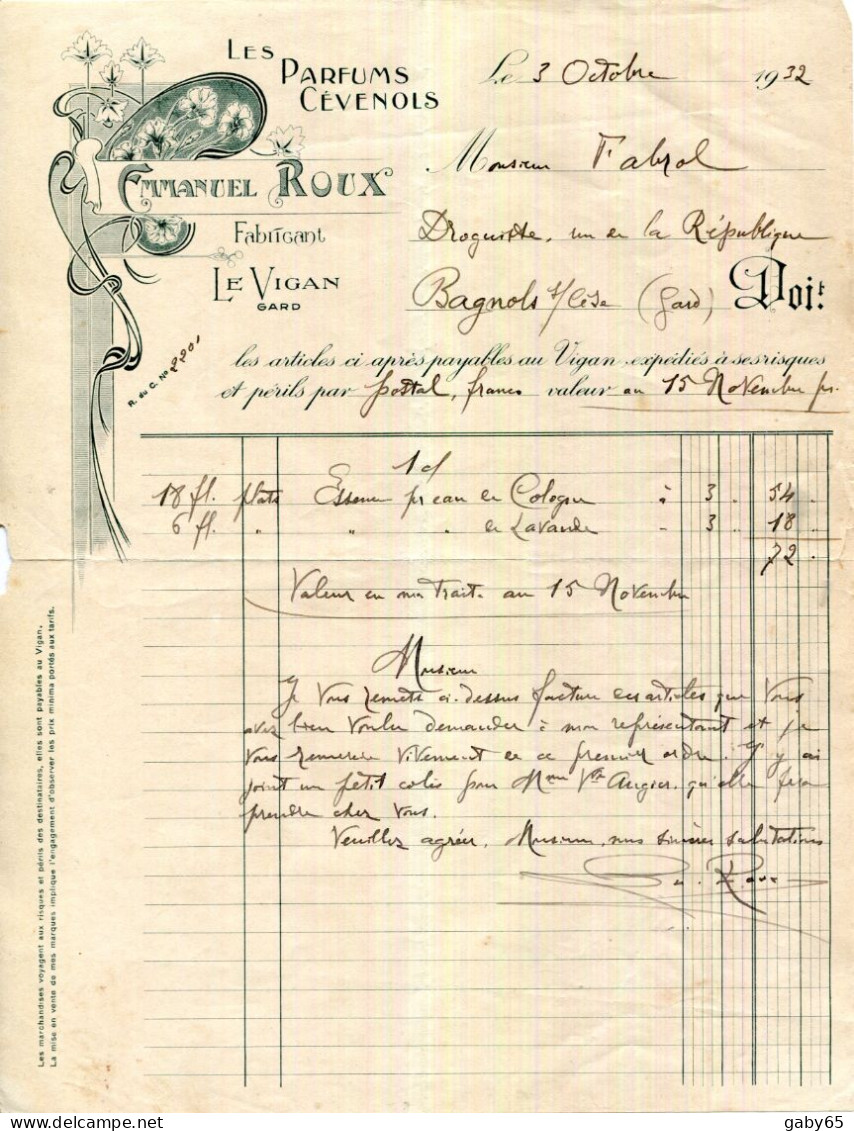 LES
PARFUMS
CÉVENOLS
EMMANUEL ROUX
Fabricant
LE VIGAN
GARD
R. du C. No 2201
Le 3 Octobre 1932
Monsieur Fabrol
Droguiste, rue de la République
Bagnols s/Cèze (Gard) Doit
les articles ci après payables au Vigan expédiés à ses risques
et périls par postal, franco valeur au 15 Novembre pr.
1 cl
18 fl. plats Essence pr eau de Cologne à 3 . 54 .
6 fl. " " " de Lavande - 3 . 18 .
72 .
Valeur en ma Traite au 15 Novembre
Monsieur
Je vous remets ci-dessus facture des articles que vous
avez bien voulu demander à mon représentant et je
vous remercie vivement de ce premier ordre. J'y ai
joint un petit colis pour Mme Vve Augier, qu'elle fera
prendre chez vous.
Veuillez agréer, Monsieur, mes sincères salutations
Em. Roux
Les marchandises voyagent aux risques et périls des destinataires, elles sont payables au Vigan.
La mise en vente de mes marques implique l'engagement d'observer les prix minima portés aux tarifs.
delcampe.net
gaby65